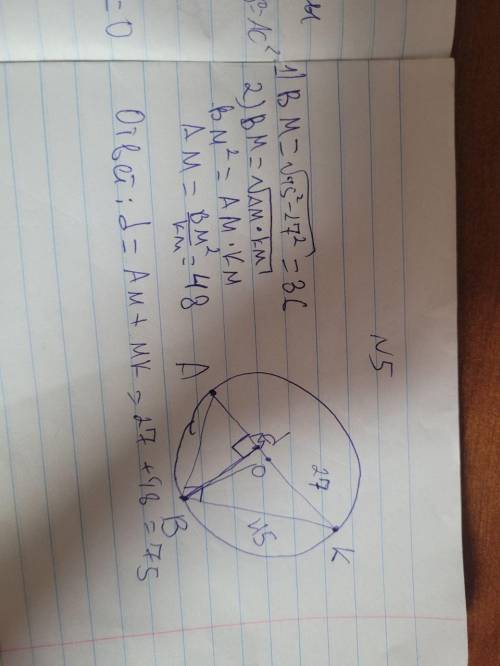 N5
1) BM = √45² - 27² = 36
2) BM = √AM · KM
BM² = AM · KM
AM = BM² / KM = 48
Ответ: d = AM + MK = 27 + 48 = 75
A
B
K
O
27
45
= 0